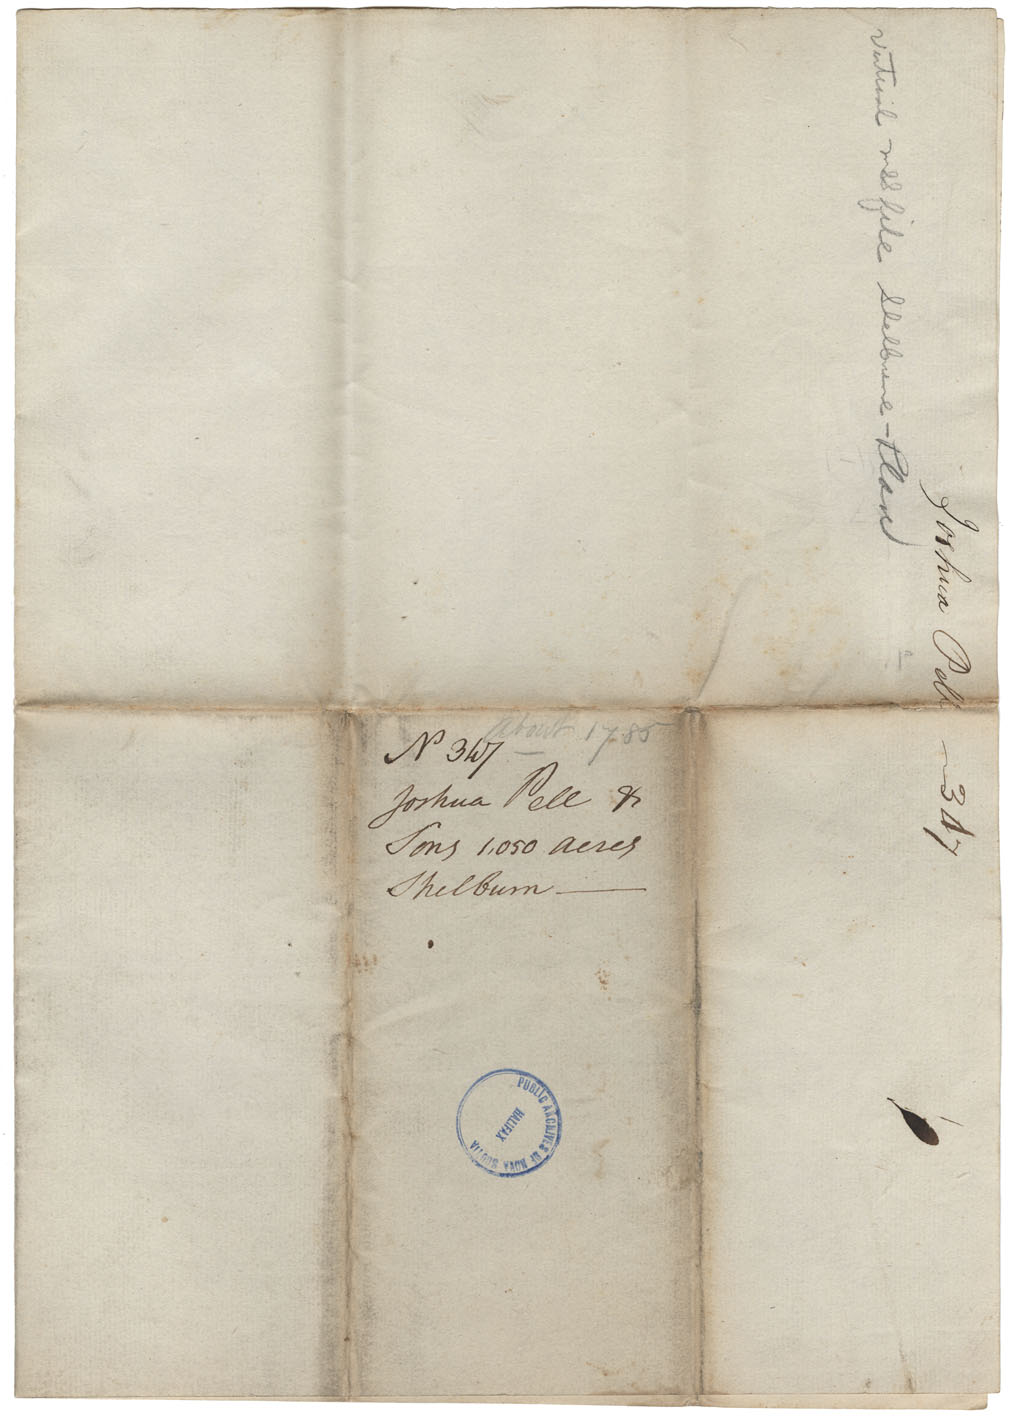 Vertical mss file Shelburne - Land
Joshua Pell 347
About 1785
No 347
Joshua Pell &
Sons 1,050 acres
Shelburn
PUBLIC ARCHIVES OF NOVA SCOTIA
HALIFAX